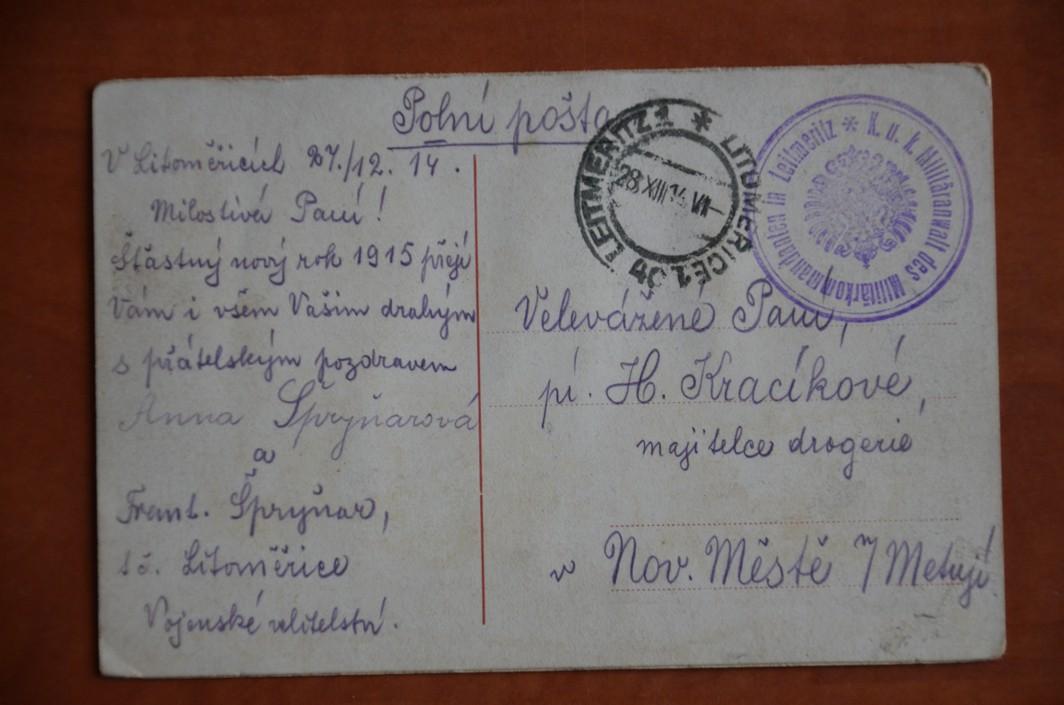 Polní pošta
V Litoměřicích 27./12. 14.
Milostivá Paní!
Šťastný nový rok 1915 přeji
Vám i všem Vašim drahým
s přátelským pozdravem
Anna Špryňarová
a
Frant. Špryňar,
tč. Litoměřice
Vojenské velitelství.
LEITMERITZ 1 * LITOMĚŘICE 1
28.XII.14.VII
K. u. k. Militäranwalt des Militärkommandanten in Leitmeritz *
Velevážené Paní,
pí. H. Kracíkové,
majitelce drogerie
v Nov. Městě n/Metují